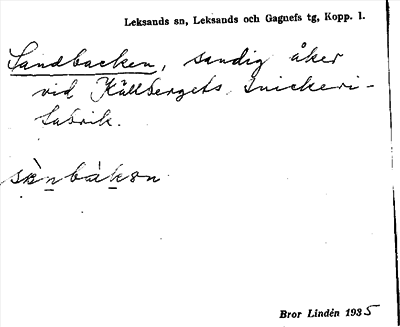 Leksands sn, Leksands och Gagnefs tg, Kopp. l.
Sandbacken, sandig åker
vid Källbergets Snickeri-
fabrik.
Bror Lindén 1935